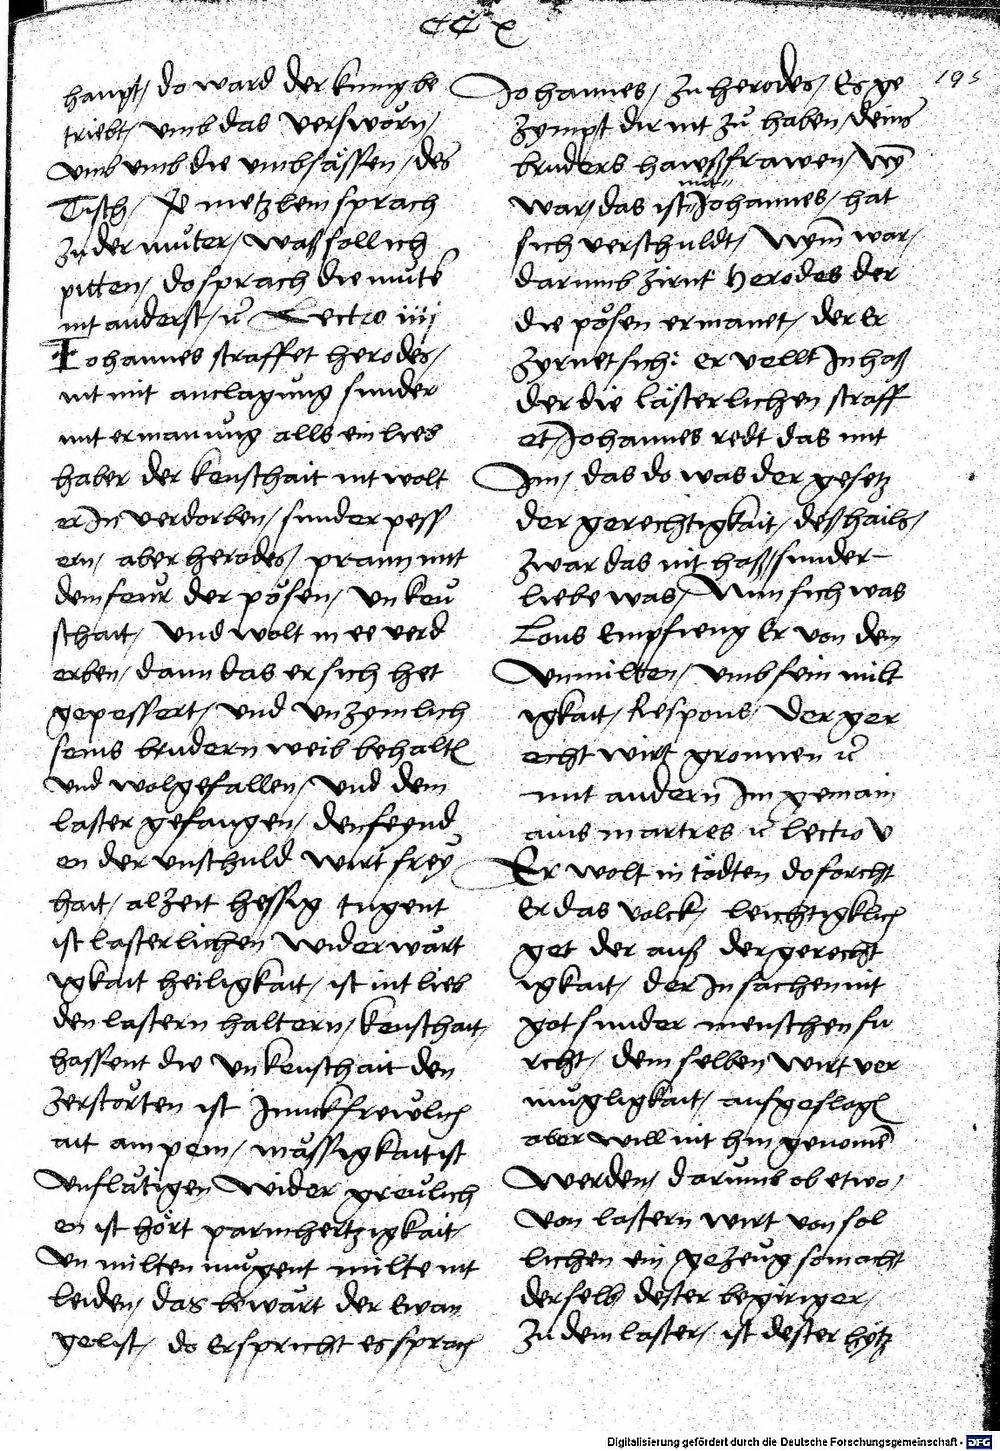 CCx
195
haupt/ do ward der kunig be
triebt/ vmb das versworn/
vnd vmb die vmbsässen/ des
Tisch/ Je metzlein sprach
zu der muter/ waß soll ich
pitten/ do sprach die mute
nit anderst/ Lectio iiij
Johannes straffet herodes/
nit mit anclagung sunder
mit ermanung alls ein lieb
haber der keuschait nit wolt
er In verdorben/ sunder pess
ern/ aber herodes/ prann mit
dem feur der pösen/ vnkeu
schait/ vnd wolt in ee verd
erben/ dann das er sich het
gepessert/ vnd vnzymlich
seins brudern weib behalt
vnd wolgefallen/ vnd dem
laster gefangen/ den feynd
en der vnschuld wirt frey
hait/ alzeit hessig tugent
ist lasterlichen widerwärt
igkait heiligkait/ ist nit lieb
den lastern haltern/ keuschait/
hassent die vnkeuschait den
zerstörten ist Junckfrewlich
ait am pein/ mässigkait ist
vnflätigen wider greulich
en ist hört parmhertzigkait/
vn milten mugent milte nit
leiden/ das bewärt der Ewan
gelist/ do er spricht es sprach
Johannes/ zu herodes/ Es ge
zympt dir nit zu haben/ deins
bruders hawßfrawen/
war/ das ist nit Johannes/ hat
sich verschuldt/ war/
darumb zirnt Herodes der
die pösen ermanet/ der Er
zyrnet sich: er vellt In haß
der die lästerlichen straff
et/ Johannes redt das mit
Im/ das do was der gesetz
der gerechtigkait/ des hails/
zwar das nit haß/ sunder
liebe was/ Nun sich was
Lons Empfieng Er von den
vnmilten/ vmb sein milt
igkait/ Respons/ Der ger
echt wirt gronnen
mit andern Im gemain
ains martres Lectio v
Er wolt in tödten do forcht
Er das volck/ leichtigklich
get der auß der gerecht
igkait/ der In sachen nit
got sunder menschen fu
rcht/ dem selben wirt ver
mugligkait/ aufgeslog
aber will nit hin genomen
werden/ darumb ob etwo/
von lastern wirt von sol
lichen ein gezeug so macht
derselb dester begiriger/
zu dem laster/ ist dester hytz
Digitalisierung gefördert durch die Deutsche Forschungsgemeinschaft - DFG